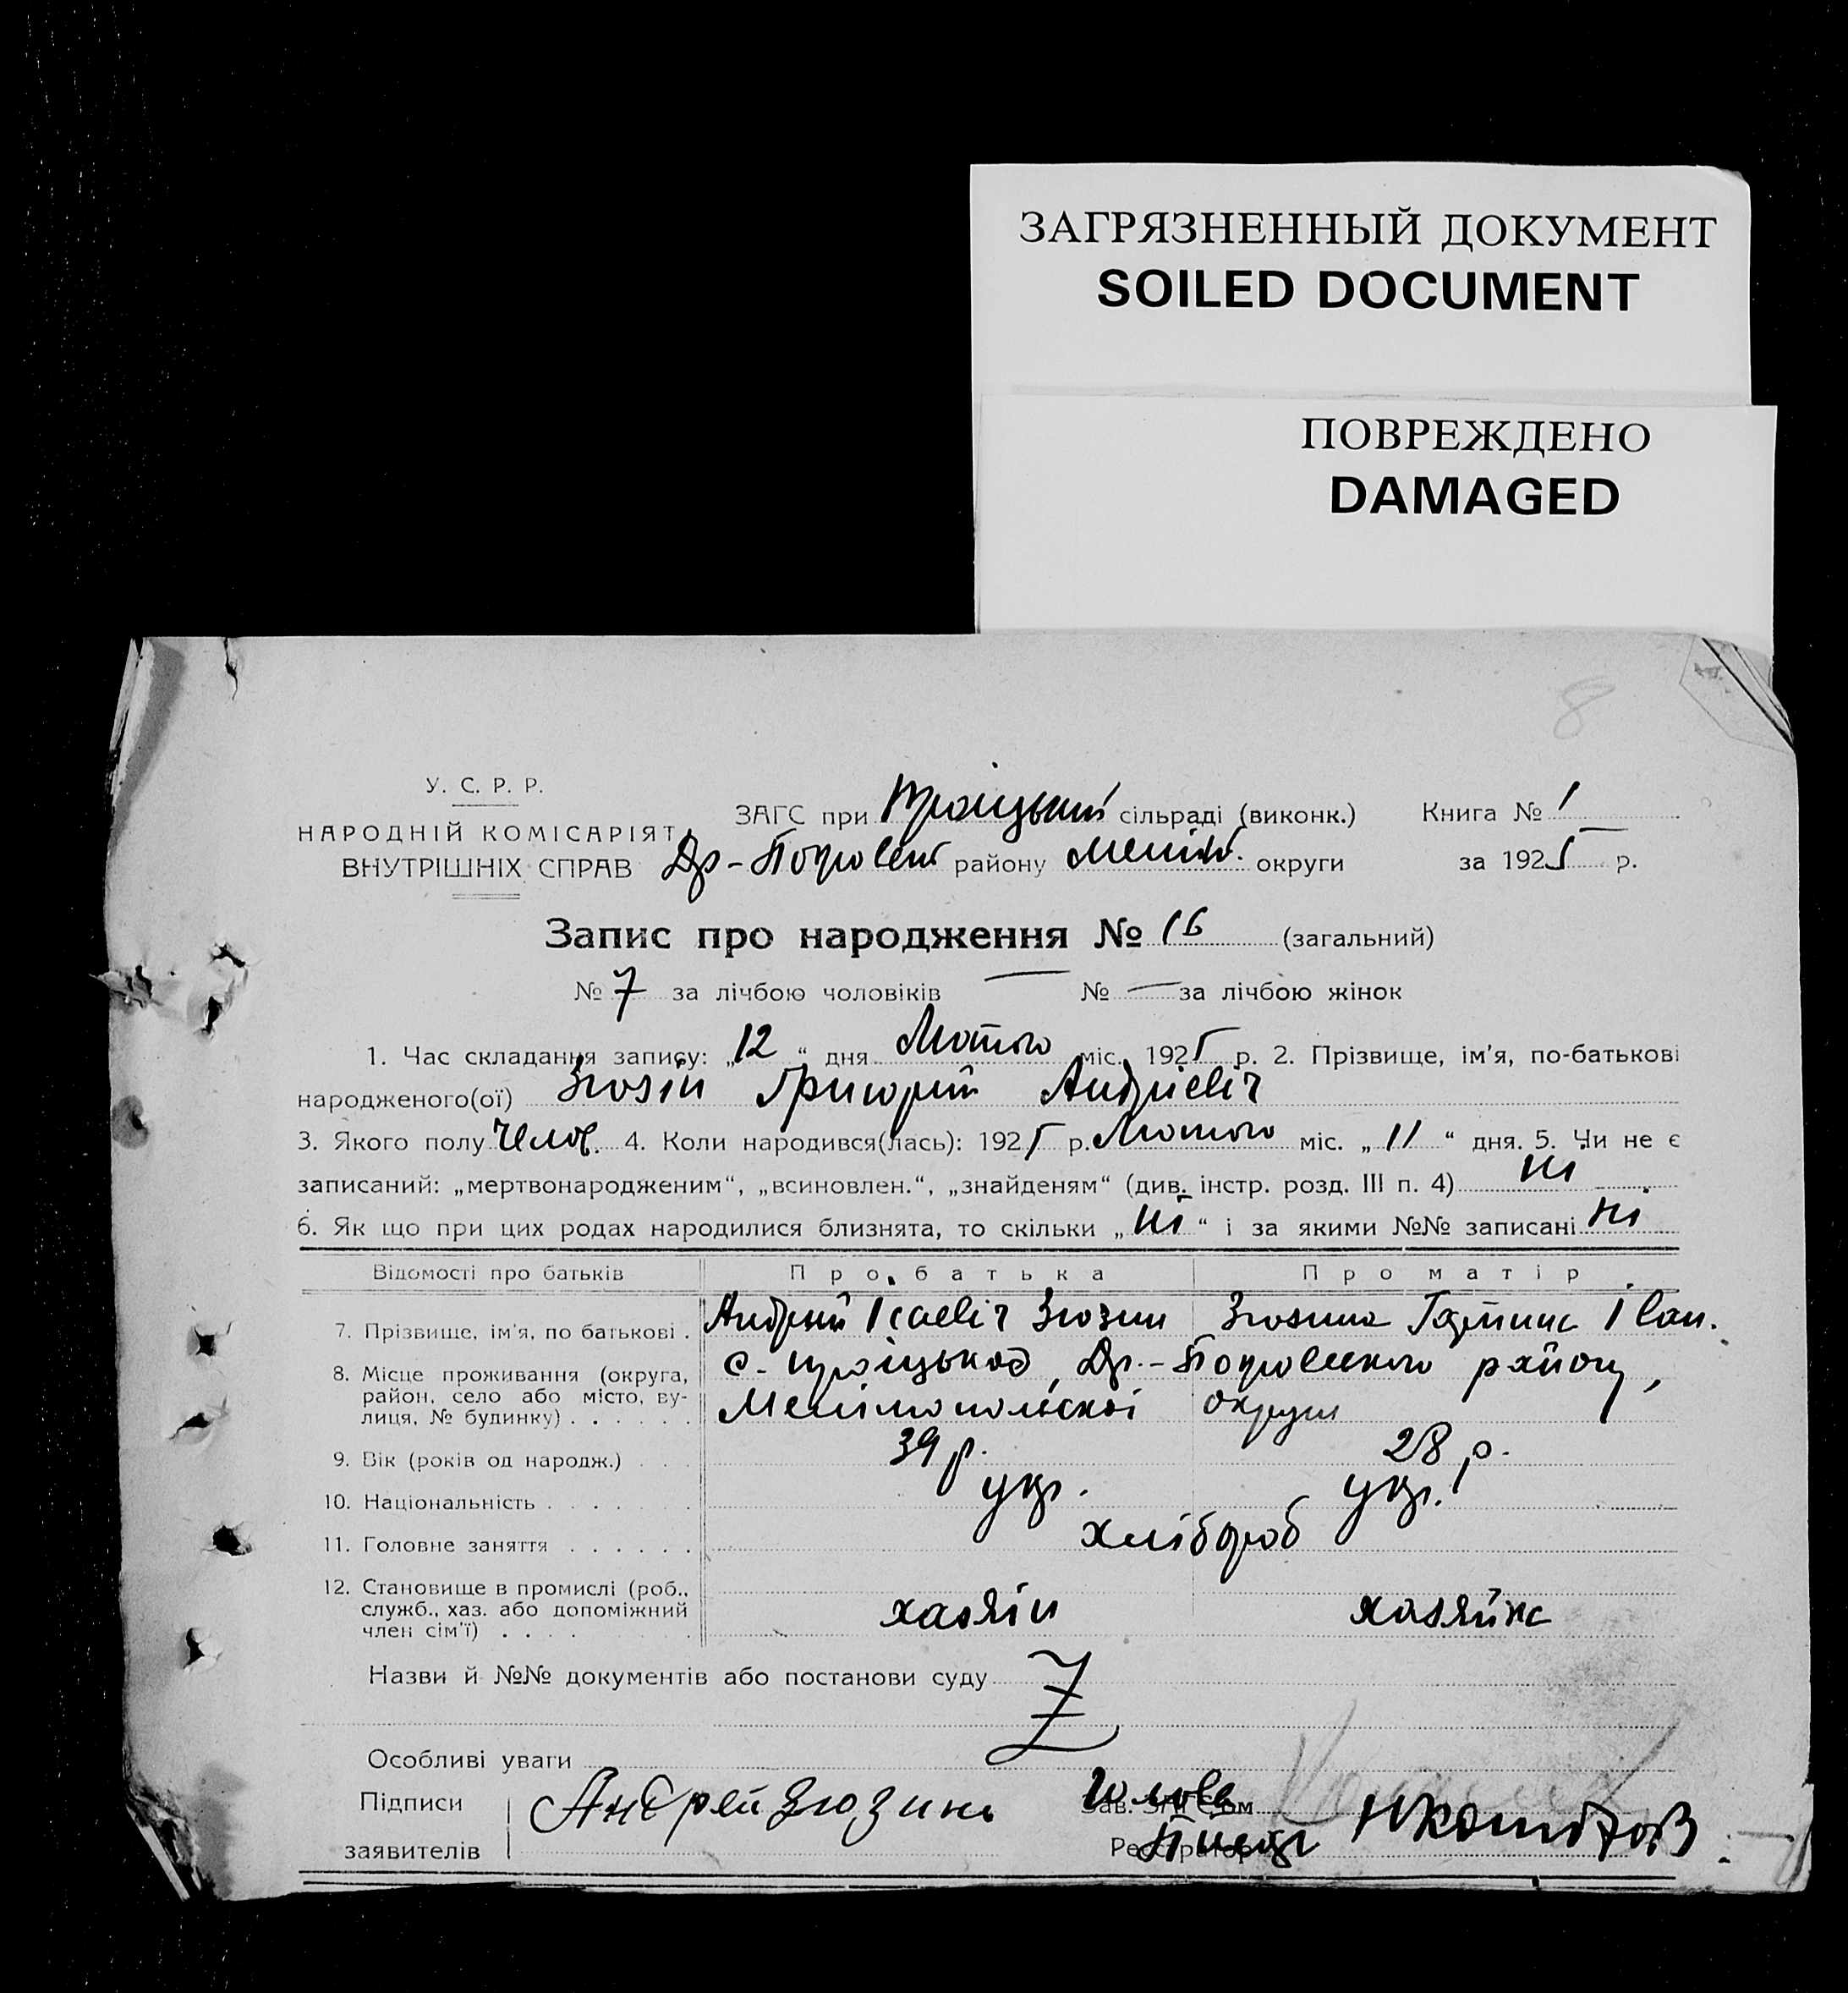 ЗАГРЯЗНЕННЫЙ ДОКУМЕНТ
SOILED DOCUMENT
ПОВРЕЖДЕНО
DAMAGED
8
У. С. Р. Р.
НАРОДНІЙ КОМІСАРІЯТ
ВНУТРІШНІХ СПРАВ
ЗАГС при Троіцький сільраді (виконк.) Книга № 1
Др-Покровськ району Меліт. округи за 1925 р.
Запис про народження № 16 (загальний)
№ 7 за лічбою чоловіків — № — за лічбою жінок
1. Час складання запису: „12“ дня Лютого міс. 1925 р. 2. Прізвище, ім’я, по-батькові
народженого(ої) Зюзін Григорий Андріевіч
3. Якого полу Челов. 4. Коли народився(лась): 1925 р. Лютого міс. „11“ дня. 5. Чи не є
записаний: „мертвонародженим“, „всиновлен.“, „знайденям“ (див. інстр. розд. III п. 4) ні
6. Як що при цих родах народилися близнята, то скільки „ні“ і за якими №№ записані ні
Відомості про батьків Про батька Про матір
7. Прізвище, ім’я, по батькові . Андрий Ісаевіч Зюзин Зюзина Іван.
8. Місце проживання (округа, район, село або місто, вулиця, № будинку) . . . . . . с. Др.-Покровського району,
Мелітопольскоі округи
9. Вік (років од народж.) . . . 39 р. 28 р.
10. Національність . . . . . . . укр. укр.
11. Головне заняття . . . . . . хлібороб
12. Становище в промислі (роб., служб., хаз. або допоміжний член сім’ї) . . . . хазяін хазяйка
Назви й №№ документів або постанови суду
Особливі уваги
Підписи
заявителів
Андрей Зюзинъ
Зав. ЗАГС’ом Голова
Реєстратор